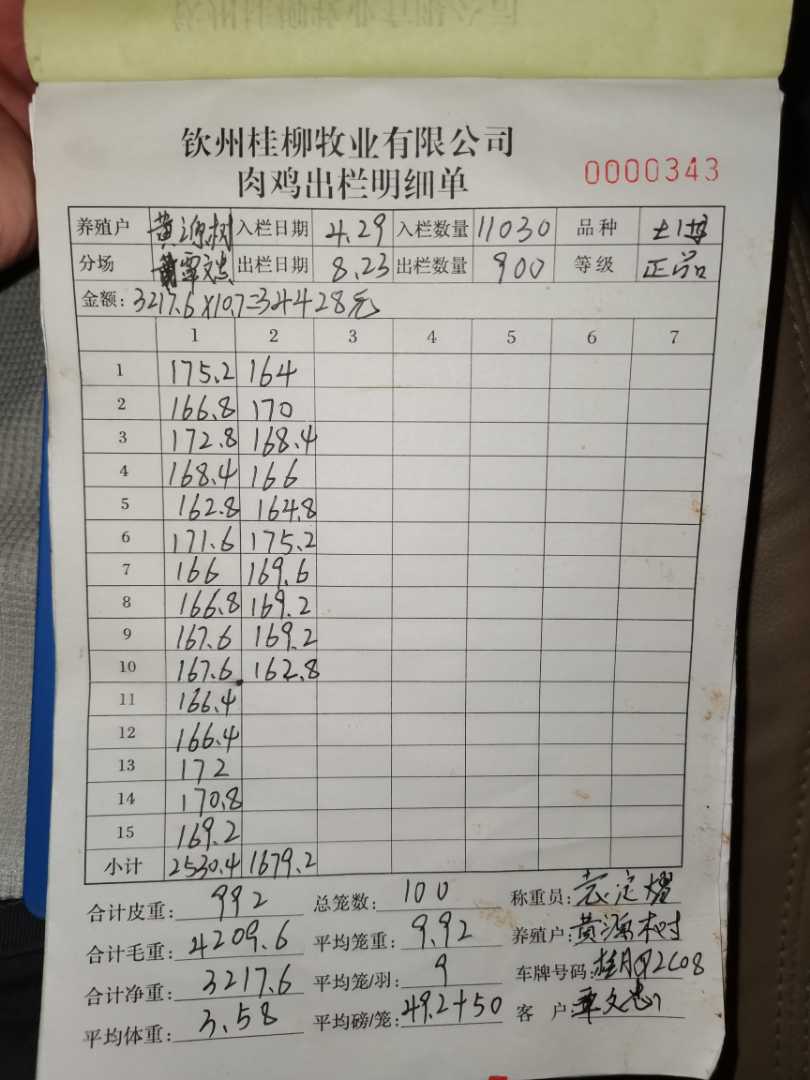 钦州桂柳牧业有限公司
肉鸡出栏明细单
0000343
养殖户 黄源树 入栏日期 4.29 入栏数量 11030 品种
分场 覃文忠 出栏日期 8.23 出栏数量 900 等级 正品
金额: 3217.6×10.7=34428元
1 2 3 4 5 6 7
1 175.2 164
2 166.8 170
3 172.8 168.4
4 168.4 166
5 162.8 164.8
6 171.6 175.2
7 166 169.6
8 166.8 169.2
9 167.6 169.2
10 167.6 162.8
11 166.4
12 166.4
13 172
14 170.8
15 169.2
小计 2530.4 1679.2
合计皮重: 992 总笼数: 100 称重员: 袁定熠
合计毛重: 4209.6 平均笼重: 9.92 养殖户: 黄源树
合计净重: 3217.6 平均笼/羽: 9 车牌号码:
平均体重: 3.58 平均磅/笼: 49.2+50 客户: 覃文忠